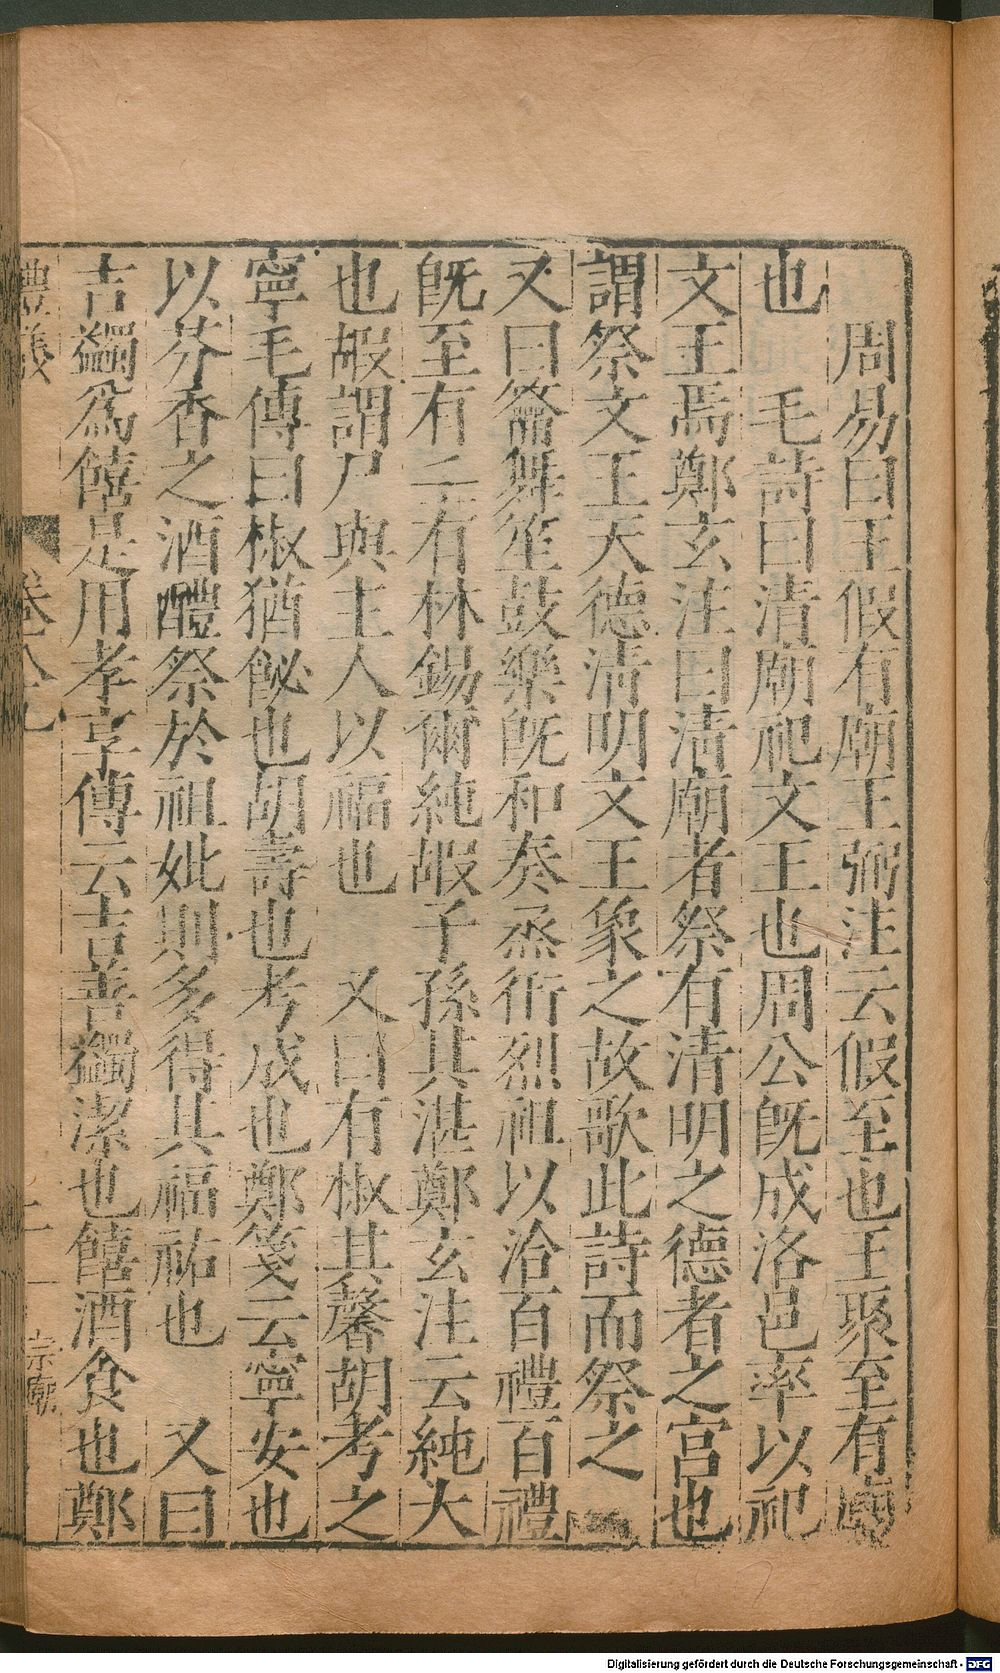 周易曰王假有廟王弼注云假至也王聚至有廟
也　毛詩曰清廟祀文王也周公旣成洛邑率以祀
文王焉鄭玄注曰清廟者祭有清明之德者之宮也
謂祭文王天德清明文王象之故歌此詩而祭之
又曰籥舞笙鼓樂旣和奏烝衎烈祖以洽百禮百禮
旣至有壬有林錫爾純嘏子孫其湛鄭玄注云純大
也嘏謂尸與主人以福也　又曰有椒其馨胡考之
寧毛傳曰椒猶飶也胡壽也考成也鄭箋云寧安也
以芬香之酒醴祭於祖妣則多得其福祐也　又曰
吉蠲爲饎是用孝享傳云吉善蠲潔也饎酒食也鄭
禮儀　卷八九　二　宗廟
Digitalisierung gefördert durch die Deutsche Forschungsgemeinschaft - DFG